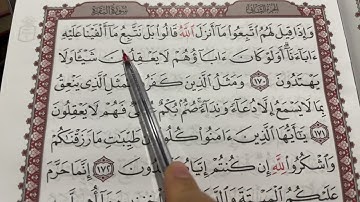 سورة البقرة
الجزء الثاني
وَإِذَا قِيلَ لَهُمُ اتَّبِعُوا مَا أَنزَلَ اللَّهُ قَالُوا بَلْ نَتَّبِعُ مَا أَلْفَيْنَا عَلَيْهِ
ءَابَاءَنَا أَوَلَوْ كَانَ ءَابَاؤُهُمْ لَا يَعْقِلُونَ شَيْئًا وَلَا
يَهْتَدُونَ ١٧٠ وَمَثَلُ الَّذِينَ كَفَرُوا كَمَثَلِ الَّذِي يَنْعِقُ
بِمَا لَا يَسْمَعُ إِلَّا دُعَاءً وَنِدَاءً صُمٌّ بُكْمٌ عُمْيٌ فَهُمْ لَا يَعْقِلُونَ
١٧١ يَا أَيُّهَا الَّذِينَ ءَامَنُوا كُلُوا مِن طَيِّبَاتِ مَا رَزَقْنَاكُمْ
وَاشْكُرُوا لِلَّهِ إِن كُنتُمْ إِيَّاهُ تَعْبُدُونَ ١٧٢ إِنَّمَا حَرَّمَ
عَلَيْكُمُ الْمَيْتَةَ